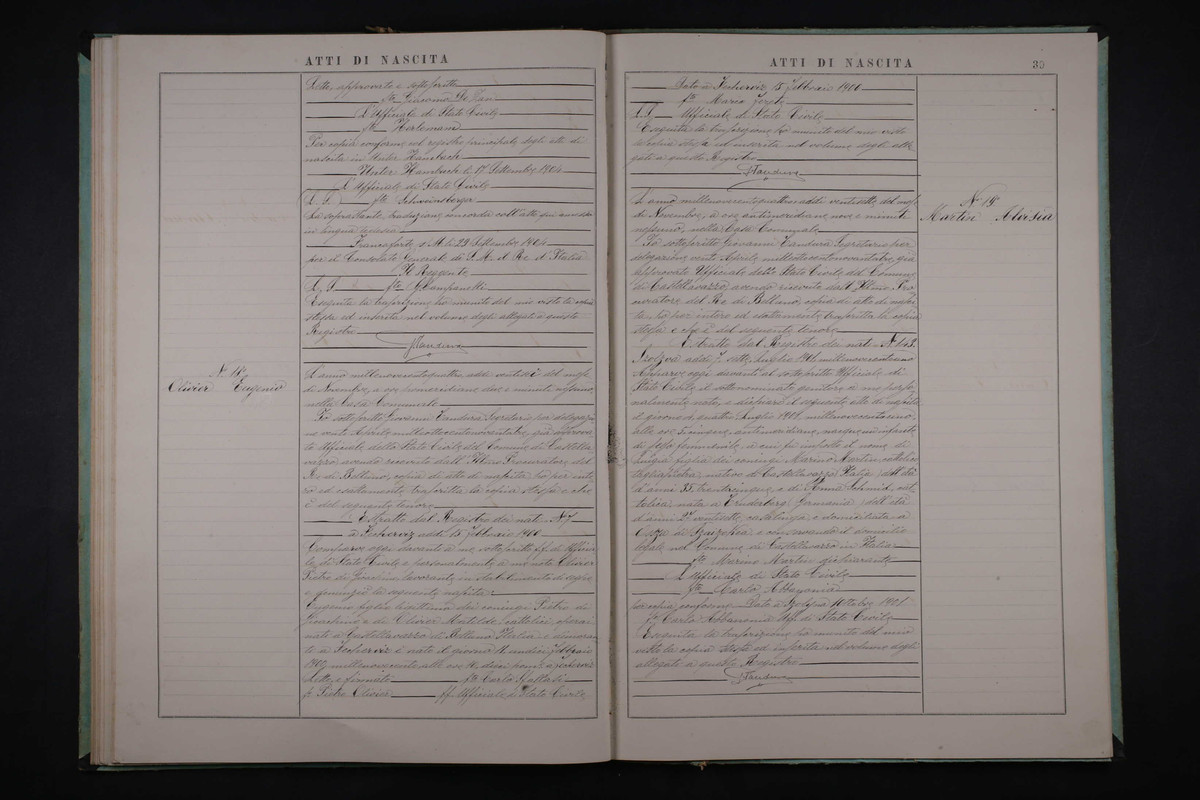 ATTI DI NASCITA
Letto, approvato e sottoscritto
fto Giacomo De
L'Uffiziale di Stato Civile
fto Herlemann
Per copia conforme col registro principale degli atti di
nascita in Unter Hambach
Unter Hambach li 17 Settembre 1904
L'Uffiziale di Stato Civile
L. S. fto Schweinsberger
La soprestante traduzione concorda coll'atto qui annesso
in lingua tedesca
Francoforte s/M li 29 Settembre 1904
per il Consolato Generale di S. M. il Re d'Italia
Il Reggente
L. S. fto
Eseguita la trascrizione ho munito del mio visto la copia
stessa ed inserita nel volume degli allegati a questo
Registro
GTandura
N. 18
Olivier Eugenio
L'anno millenovecentoquattro, addì ventisei del mese
di Novembre, a ore pomeridiane due e minuti nessuno,
nella Casa Comunale
Io sottoscritto Giovanni Tandura Segretario per delegazio
ne venti Aprile milleottocentonovantatre, già approva
to Uffiziale dello Stato Civile del Comune di Castella
vazzo avendo ricevuto dall'Ill.mo Procuratore del
Re di Belluno, copia di atto di nascita, ho per inte
ro ed esattamente trascritta la copia stessa e che
è del seguente tenore
Estratto dal Registro dei nati N. 7
a addì 15 Febbraio 1900
Comparve oggi davanti a me sottoscritto ff. di Uffizia
le di Stato Civile e personalmente a me noto Olivier
Pietro di Gioachino, lavorante in stabilimento
e denunziò la seguente nascita:
Eugenio figlio legittimo dei coniugi Pietro di
Gioachino e di Olivier Matilde, cattolici, operai
nati a Castellavazzo di Belluno, Italia, e dimoran
ti a è nato il giorno 11 undici Febbraio
1900 millenovecento alle ore 10 dieci pom. a
Letto e firmato fto Carlo
fto Pietro Olivier ff. Uffiziale di Stato Civile
ATTI DI NASCITA
39
Dato a 15 Febbraio 1900
fto Marco
L. S. Uffiziale di Stato Civile
Eseguita la trascrizione ho munito del mio visto
la copia stessa ed inserita nel volume degli alle
gati a questo Registro
GTandura
N. 19
Martini Aloisia
L'anno millenovecentoquattro addì ventisette del mese
di Novembre, a ore antimeridiane nove e minuti
nessuno, nella Casa Comunale
Io sottoscritto Giovanni Tandura Segretario per
delegazione venti Aprile milleottocentonovantatre, già
approvato Uffiziale dello Stato Civile del Comune
di Castellavazzo, avendo ricevuto dall'Ill.mo Pro
curatore del Re di Belluno, copia di atto di nasci
ta, ho per intero ed esattamente trascritta la copia
stessa e che è del seguente tenore
Estratto dal Registro dei nati N. 143
addì 7 sette Luglio 1901 millenovecentouno
Comparve oggi davanti al sottoscritto Uffiziale di
Stato Civile il sottonominato genitore a me perso
nalmente noto, e dichiarò il seguente atto di nascita
il giorno 4 quattro Luglio 1901 millenovecentouno,
alle ore 5 cinque antimeridiane, nacque un infante
di sesso femminile, a cui fu imposto il nome di
Luigia figlia dei coniugi Marino Martin cattolico
tagliapietra, nativo di Castellavazzo Italia, dell'età
d'anni 35 trentacinque, e di Anna Schmid, cat
tolica, nata a Germania, dell'età
d'anni 27 ventisette, casalinga e domiciliata a
e conservando il domicilio
legale nel Comune di Castellavazzo in Italia
fto Marino Martin dichiarante
L'Uffiziale di Stato Civile
fto Carlo
per copia conforme Dato a Ottobre 1901
fto Carlo Uff. di Stato Civile
Eseguita la trascrizione ho munito del mio
visto la copia stessa ed inserita nel volume degli
allegati a questo Registro
GTandura